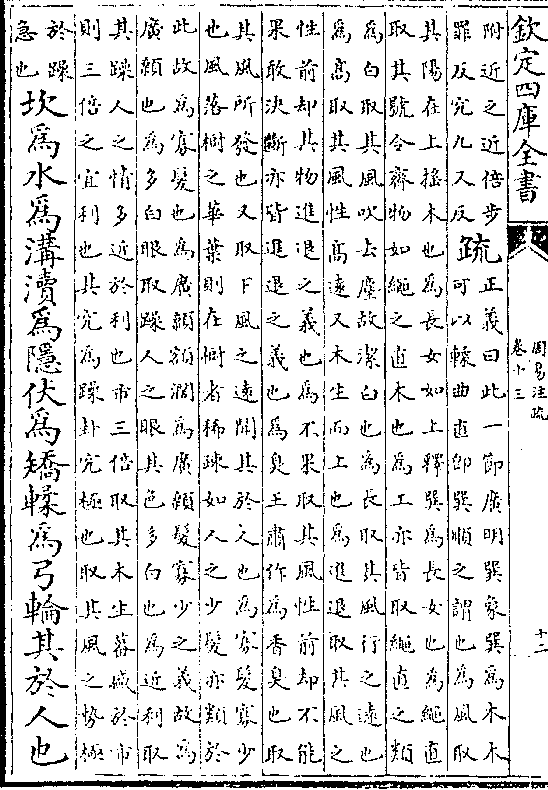 欽定四庫全書
周易注疏
卷十三
十二
附近之近倍步
罪反究九又反
疏
正義曰此一節廣明巽象巽為木木
可以輮曲直即巽順之謂也為風取
其陽在上搖木也為長女如上釋巽為長女也為繩直
取其號令齊物如繩之直木也為工亦皆取繩直之類
為白取其風吹去塵故潔白也為長取其風行之遠也
為髙取其風性髙遠又木生而上也為進退取其風之
性前却其物進退之義也為不果取其風性前却不能
果敢決斷亦皆進退之義也為臭王肅作為香臭也取
其風所發也又取下風之遠聞其於人也為寡髮寡少
也風落樹之華葉則在樹者稀疎如人之少髮亦類於
此故為寡髮也為廣顙額濶為廣顙髮寡少之義故為
廣顙也為多白眼取躁人之眼其色多白也為近利取
其躁人之情多近於利也市三倍取其木生蕃盛於市
則三倍之宜利也其究為躁卦究極也取其風之勢極
於躁
急也
坎爲水爲溝瀆爲隱伏爲矯輮爲弓輪其於人也